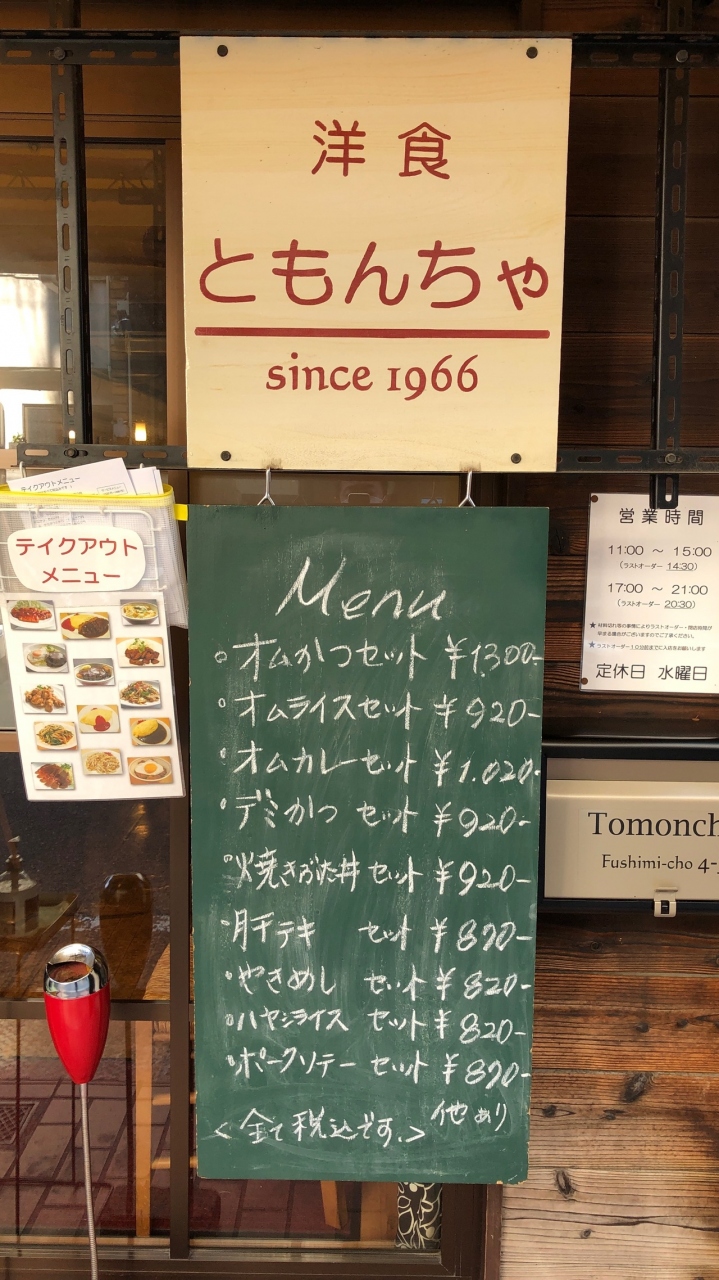 洋食
ともんちゃ
since 1966
テイクアウトメニュー
テイクアウト
メニュー
Menu
・オムかつセット ¥1300-
・オムライスセット ¥920-
・オムカレーセット ¥1.020-
・デミかつ セット ¥920-
・焼きぶた丼セット ¥920-
・肝テキ セット ¥870-
・やきめし セット ¥820-
・ハヤシライス セット ¥820-
・ポークソテー セット ¥890-
他あり
<全て税込です.>
営業時間
11:00 ～ 15:00
(ラストオーダー 14:30)
17:00 ～ 21:00
(ラストオーダー 20:30)
定休日 水曜日
Tomonch
Fushimi-cho 4-